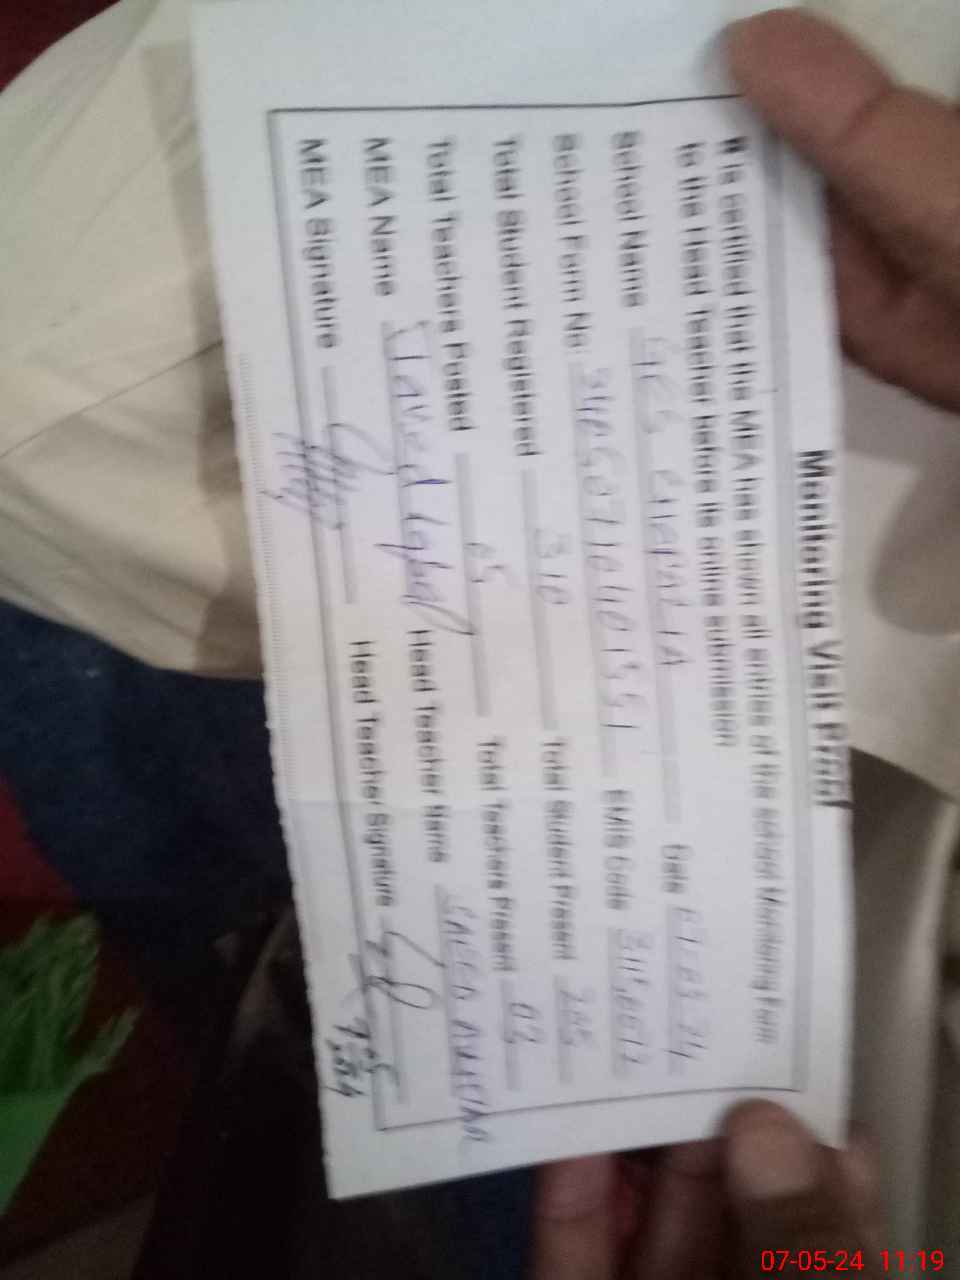 Monitoring Visit Proof
It is certified that the MEA has shown all entries of the school Monitoring Form
to the Head Teacher before its online submission
School Name GES Date 07.05.24
School Form No: EMIS Code
Total Student Registered 310 Total Student Present 205
Total Teachers Posted 05 Total Teachers Present 03
MEA Name Javed Iqbal Head Teacher Name SAEED
MEA Signature Head Teacher Signature
07-05-24 11:19